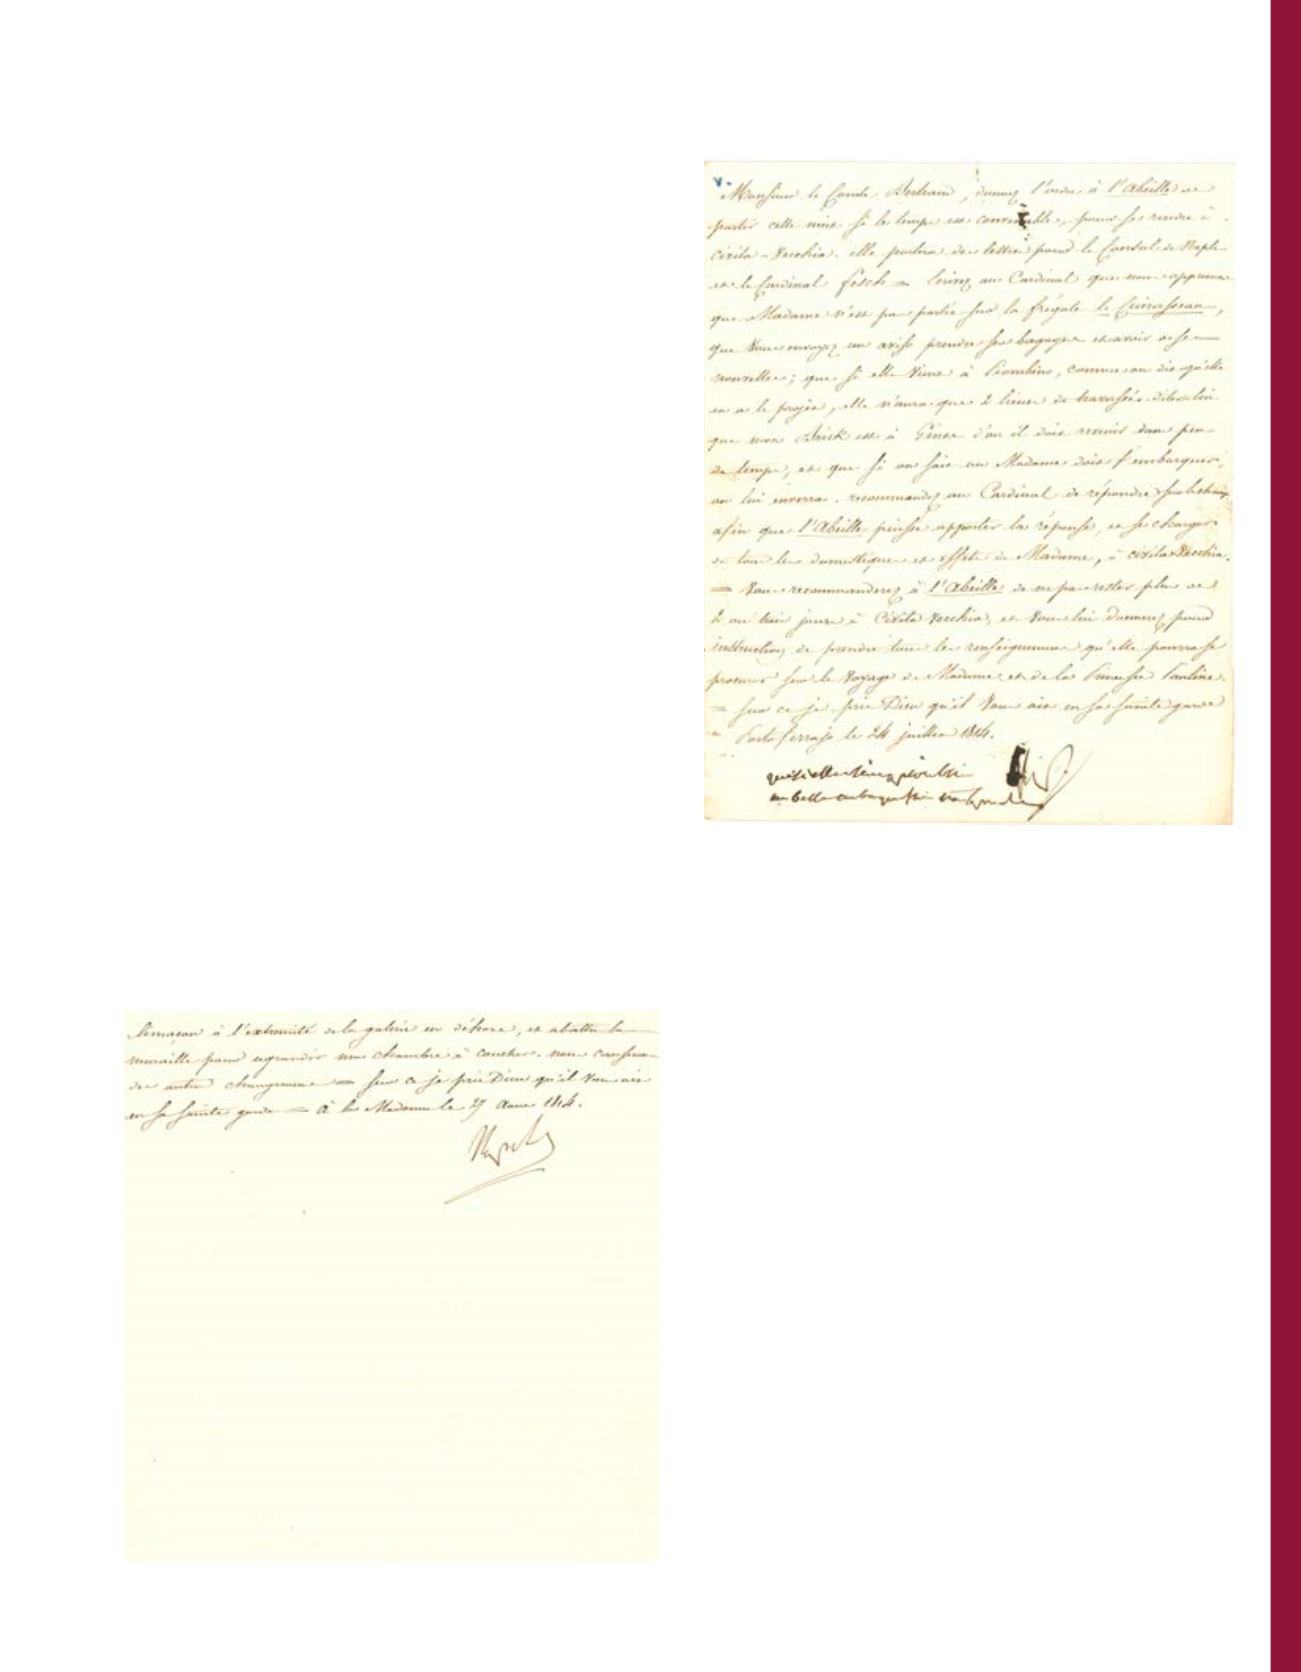 Monsieur le Comte Bertrand, donnez l'ordre à l'Abeille de
partir cette nuit si le temps est convenable, pour se rendre à
civita-Vecchia. elle portera des lettres pour le Consul de Naples
et le Cardinal fesch = Ecrivez au Cardinal que nous apprenons
que Madame n'est pas partie sur la frégate le
que vous envoyez un aviso prendre ses bagages et avoir de ses
nouvelles; que si elle vient à Piombino, comme on dit qu'elle
en a le projet, elle n'aura que 2 lieues de traversée. dites lui
que mon Brick est à Gênes d'où il doit revenir dans peu
de temps, et que si on sait où Madame doit s'embarquer,
on lui enverra. recommandez au Cardinal de répondre sur le champ
afin que l'Abeille puisse apporter la réponse, et se charger
de tous les domestiques et effets de Madame, à civita Vecchia.
= Vous recommanderez à l'Abeille de ne pas rester plus de
2 ou trois jours à Civita Vecchia, et vous lui donnerez pour
instruction de prendre tous les renseignemens qu'elle pourra se
procurer sur le voyage de Madame et de la Princesse Pauline.
= sur ce je prie Dieu qu'il vous ait en sa sainte garde
= Porto ferrajo le 24 juillet 1814.
limaçon à l'extrémité de la galerie en déhors, et abattre la
muraille pour agrandir ma chambre à coucher. nous causerons
des autres changemens = sur ce je prie Dieu qu'il vous ait
en sa sainte garde = à la Madonne le 27 Aout 1814.